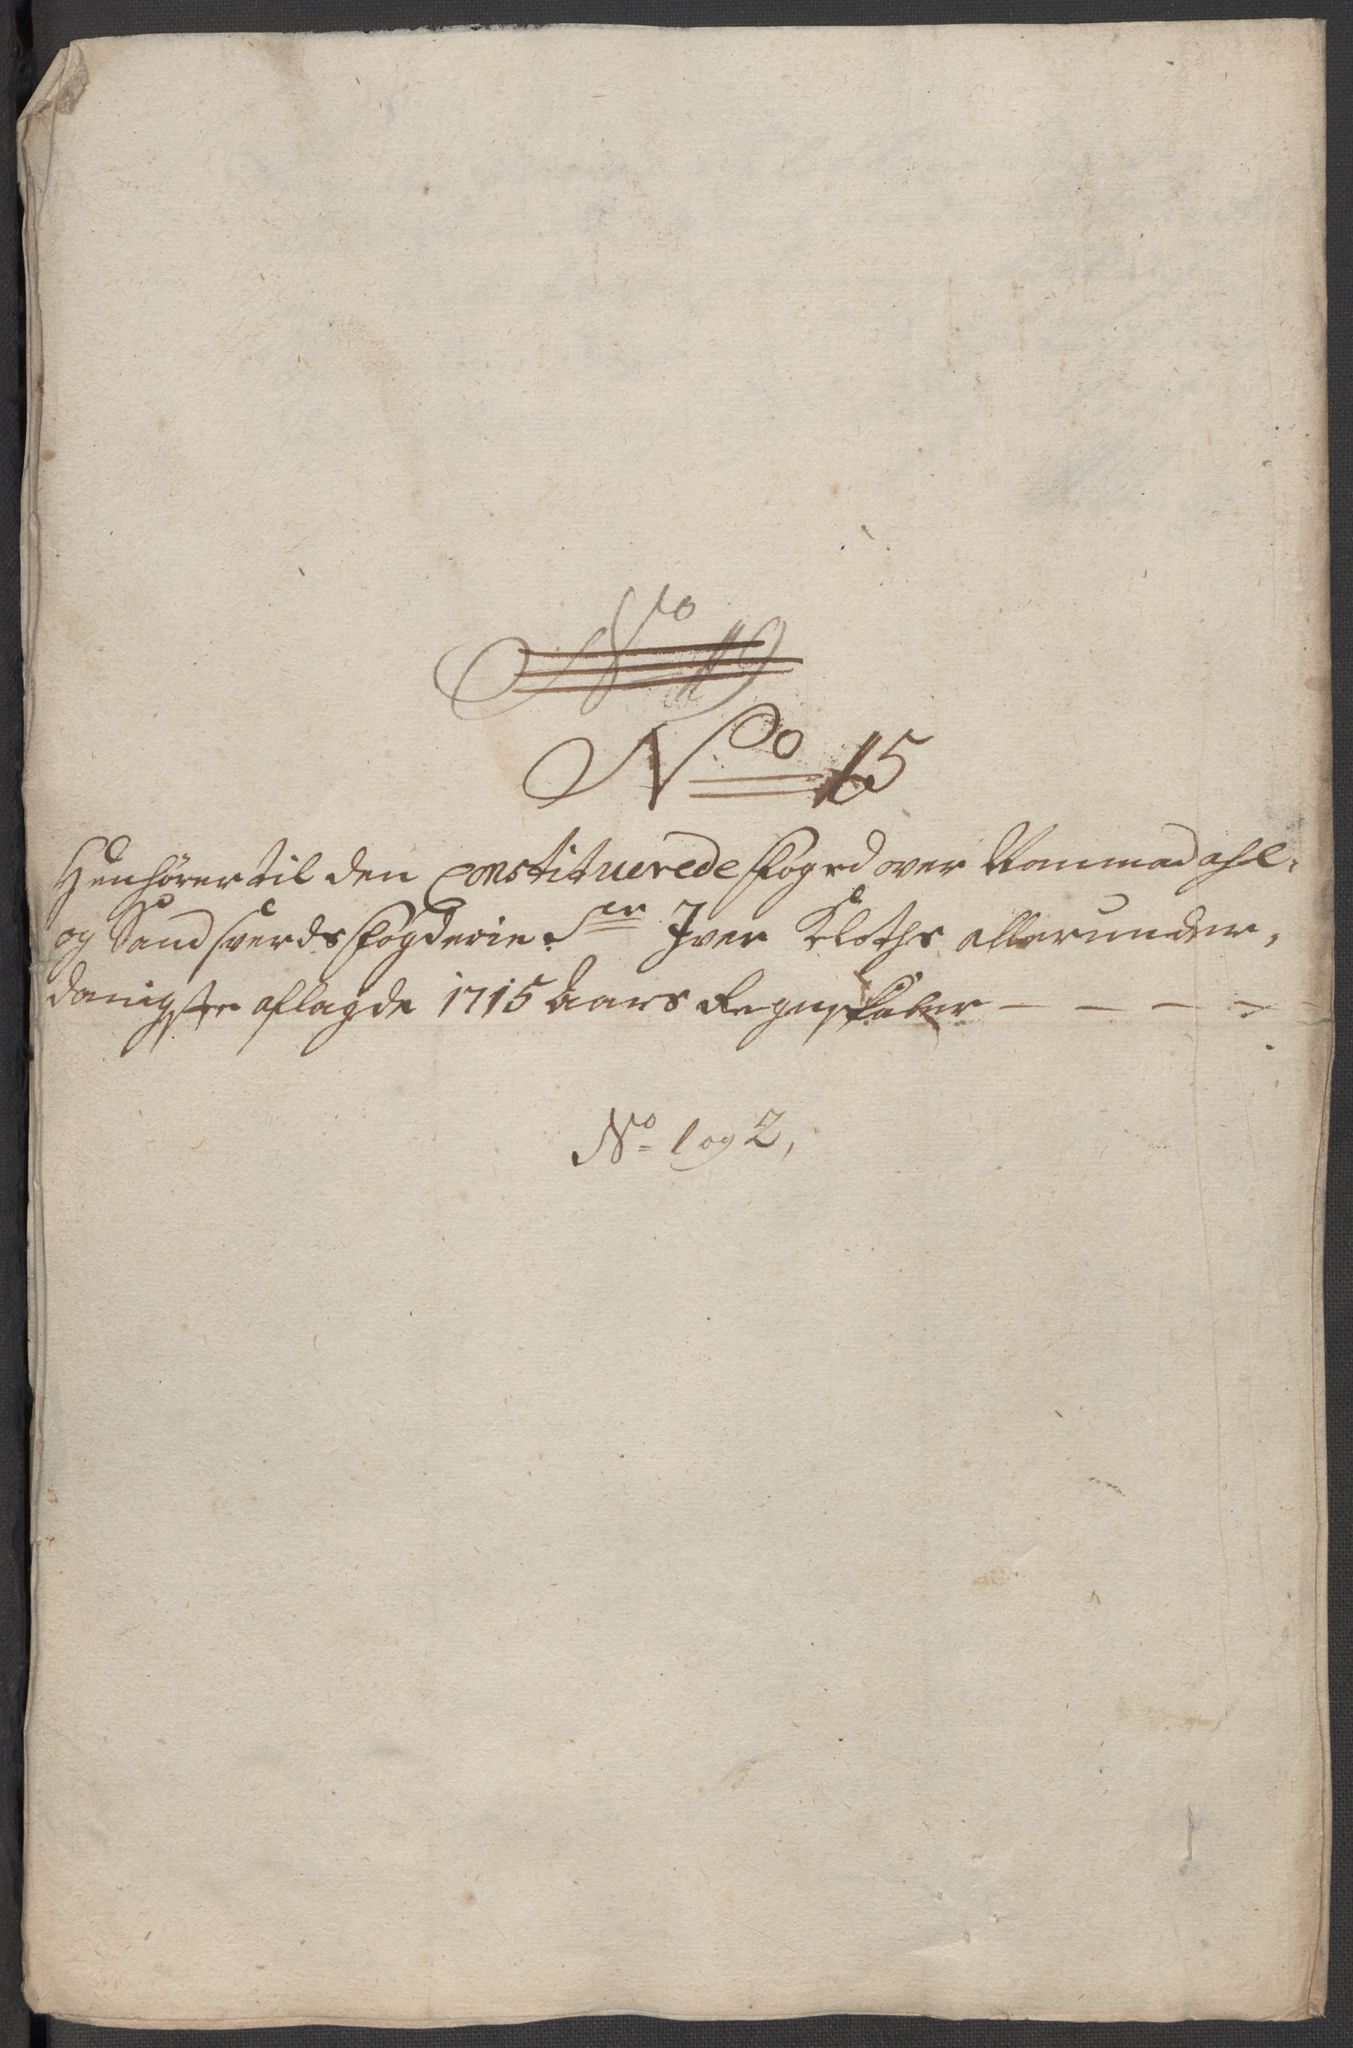 No 19
No 15
Henhörer til den Constituerede Foged over Nommedahl-
og Sandsverds Fogderie Sr Iver Kloths allerunder,
danigste aflagde 1715 Aars Regnskaber
No 1 og 2,